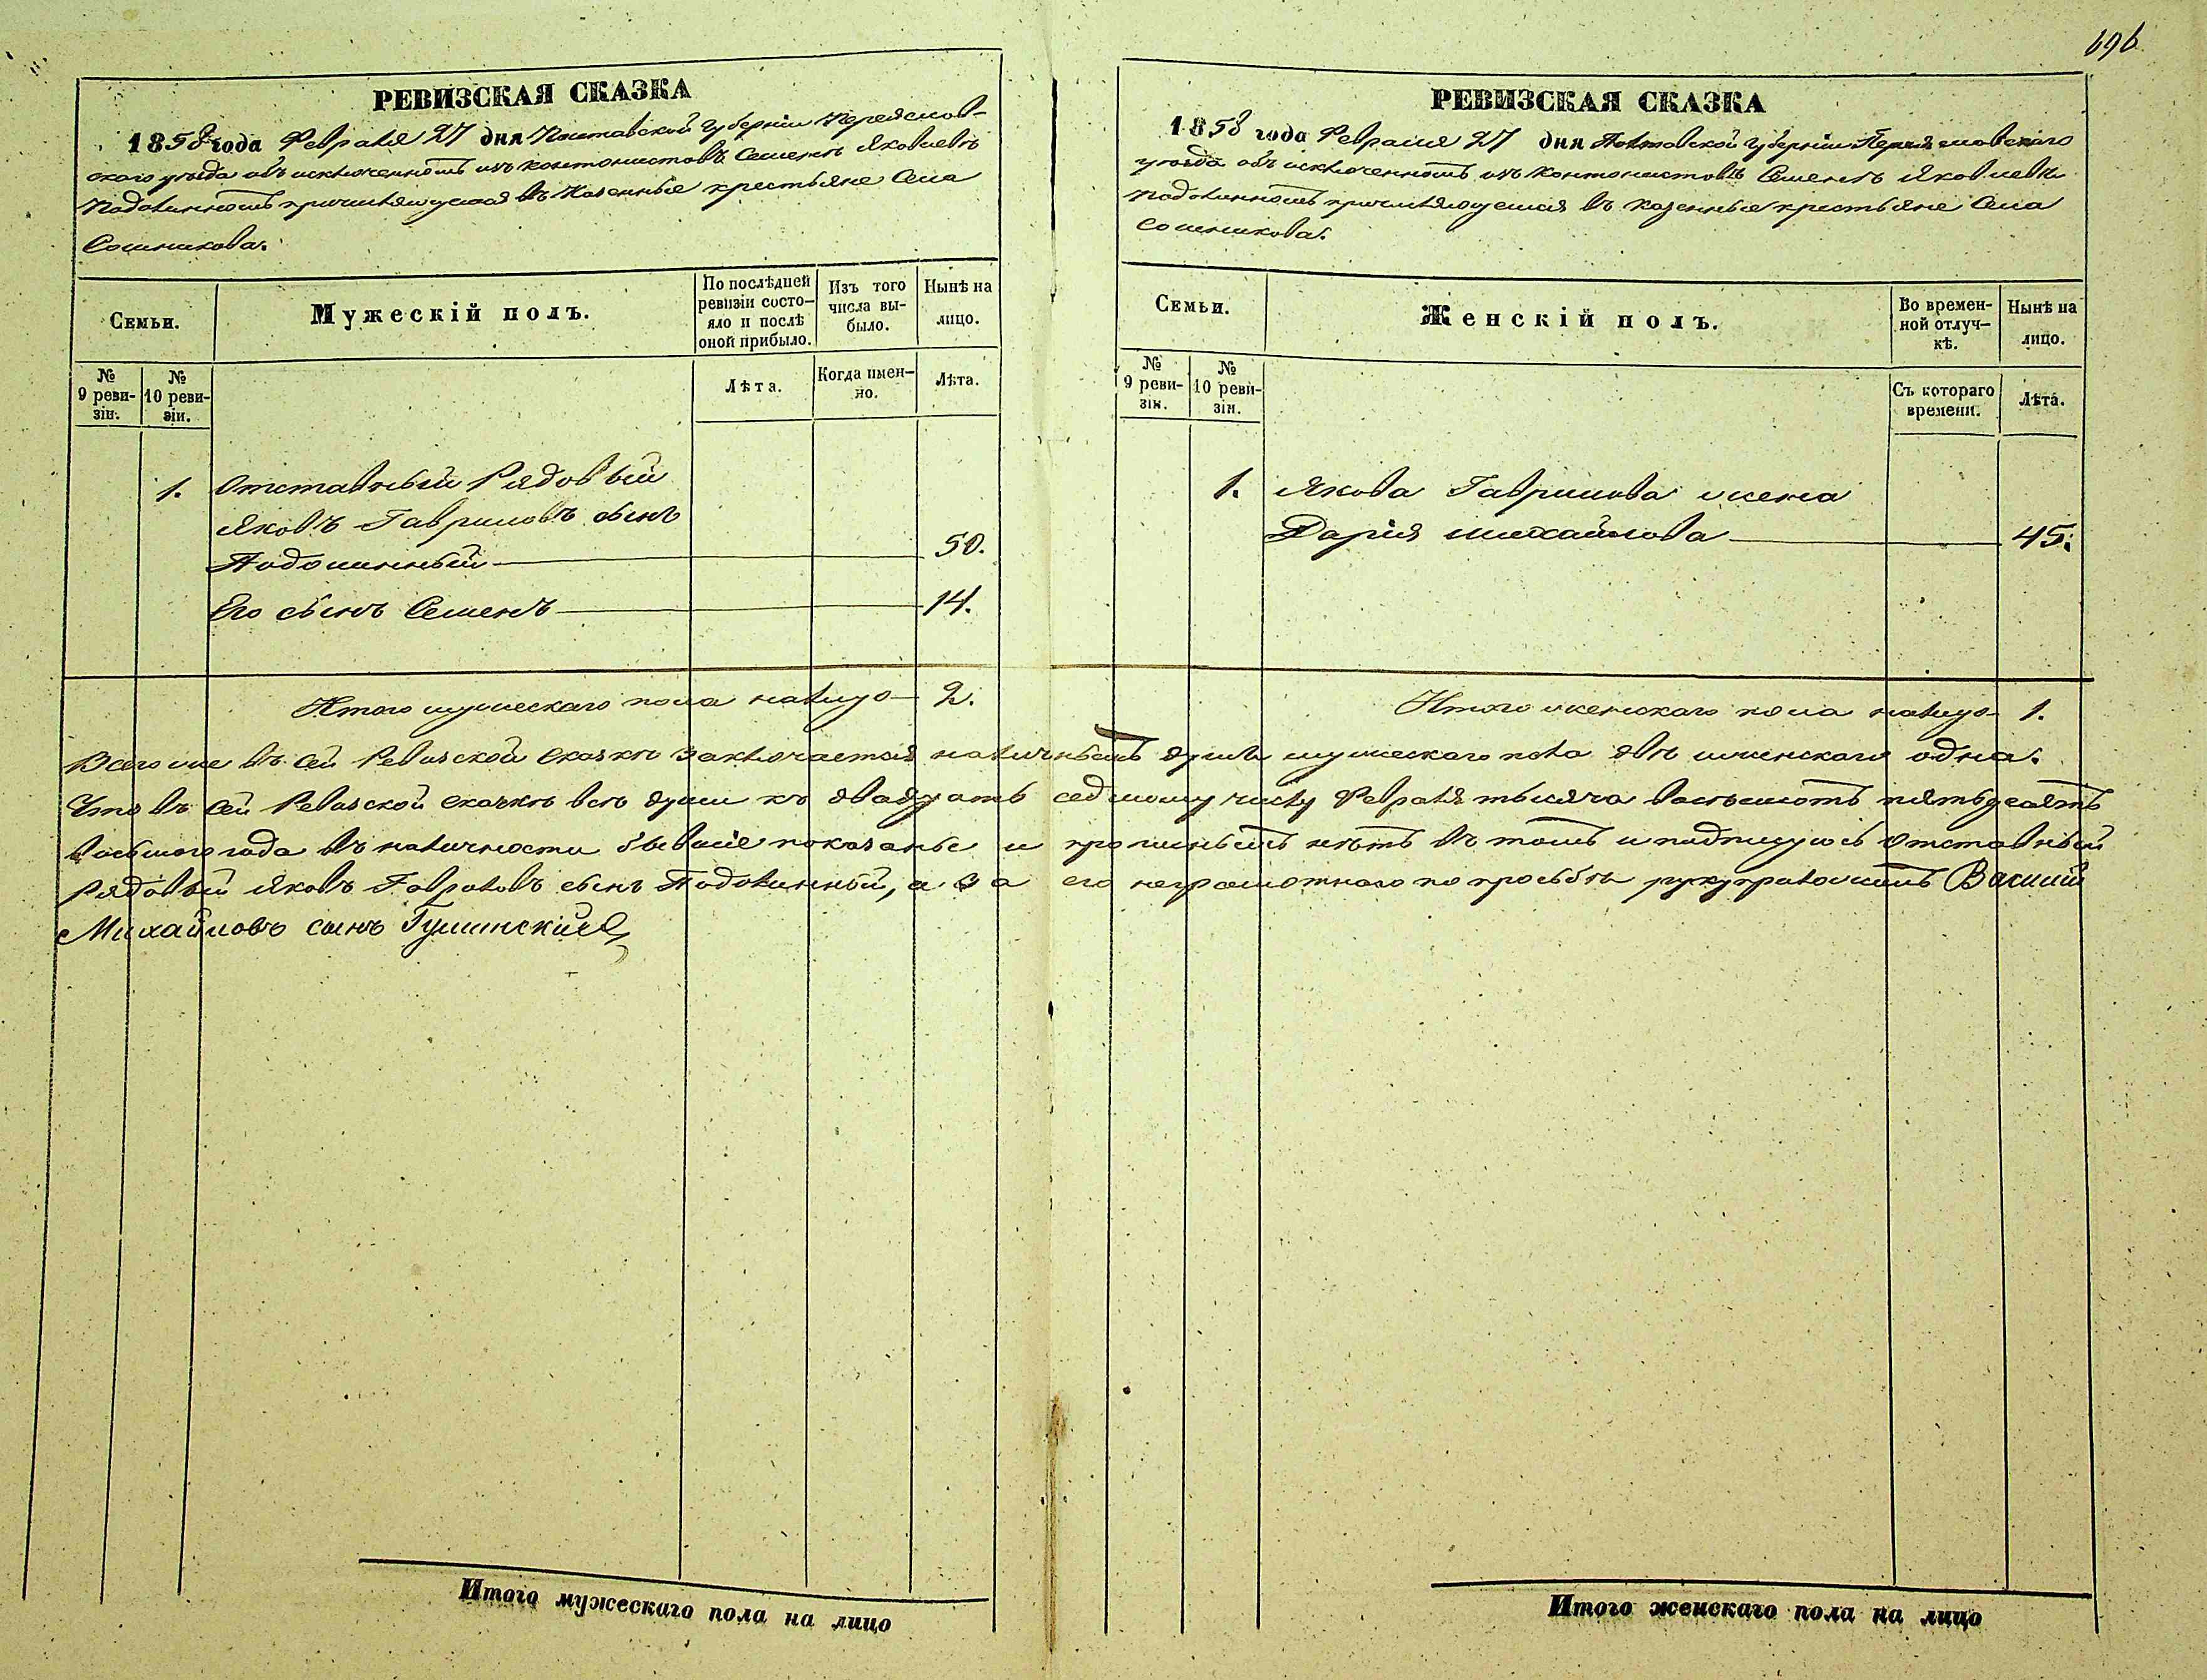 696
РЕВИЗСКАЯ СКАЗКА
1858 года Февраля 27 дня Полтавской Губерніи Переяслов-
скаго уѣзда объ исключенномъ изъ кантонистовъ Семенѣ Яковлевѣ
Подолинномъ причисляющемся въ Казенные крестьяне Села
Сошникова.
Семьи.
Мужескій полъ.
По послѣдней ревизіи состо-
яло и послѣ оной прибыло.
Изъ того числа вы-
было.
Нынѣ на лицо.
№ 9 реви-
зіи.
№ 10 реви-
зіи.
Лѣта.
Когда имен-
но.
Лѣта.
1. Отставный Рядовый
Яковъ Гавриловъ сынъ
Подолинный 50.
Его сынъ Семенъ 14.
Итого мужескаго пола налицо 2.
РЕВИЗСКАЯ СКАЗКА
1858 года Февраля 27 дня Полтавской Губерніи Переясловскаго
уѣзда объ исключенномъ изъ кантонистовъ Семенѣ Яковлевѣ
Подолинномъ причисляющемся въ казенные крестьяне Села
Сошникова.
Семьи.
Женскій полъ.
Во времен-
ной отлуч-
кѣ.
Нынѣ на лицо.
№ 9 реви-
зіи.
№ 10 реви-
зіи.
Съ котораго времени.
Лѣта.
1. Якова Гаврилова жена
Дарія Михайлова 45.
Итого женскаго пола налицо 1.
Всего же въ сей Ревизской сказкѣ заключается наличныхъ душъ мужескаго пола двѣ женскаго одна.
Что въ сей Ревизской сказкѣ всѣ души къ двадцать седмому числу Февраля тысяча восемьсотъ пятьдесятъ
восьмого года въ наличности бывшіе показаны и прописныхъ нѣтъ въ томъ и подписуюсь Отставный
Рядовый Яковъ Гавриловъ сынъ Подолинный, а за его неграмотнаго по просьбѣ руку приложилъ Василій
Михайловъ сынъ
Итого мужескаго пола на лицо
Итого женскаго пола на лицо